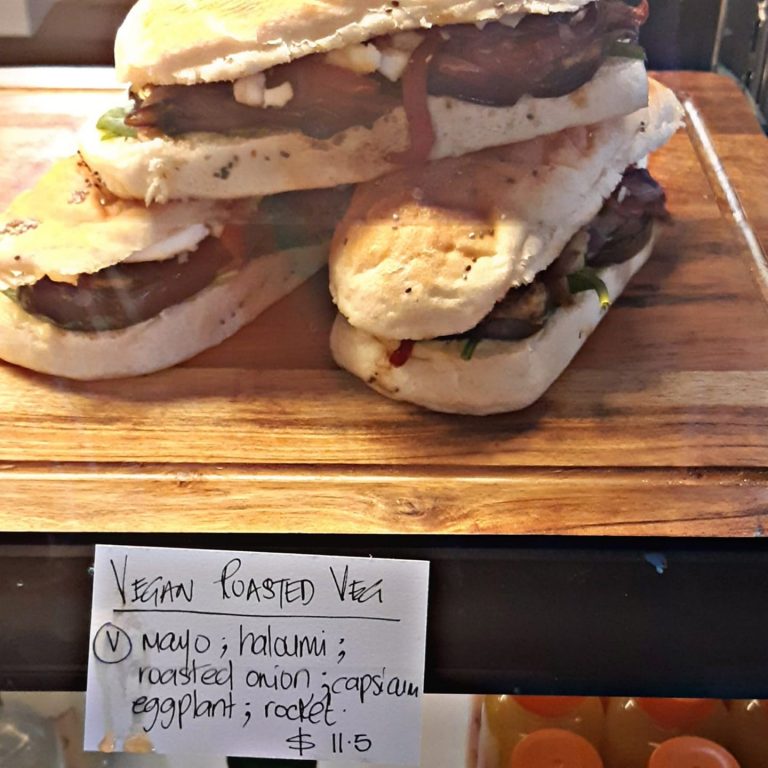 VEGAN ROASTED VEG
V mayo ; haloumi ;
roasted onion ; capsicum
eggplant ; rocket.
$ 11.5